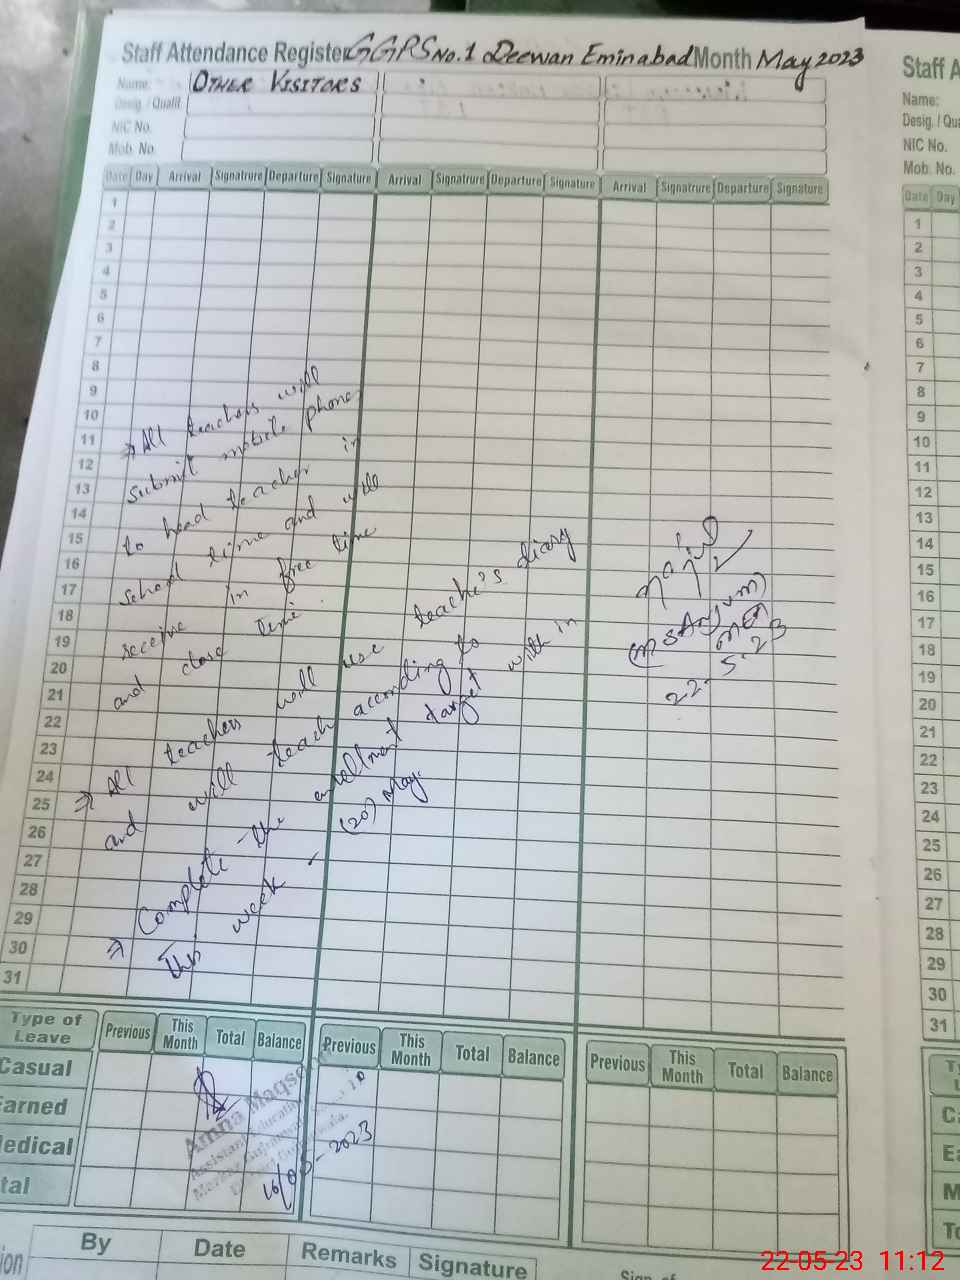 Staff Attendance Register GGPS No.1 Deewan Eminabad Month May 2023
Name: OTHER VISITORS
Desig. / Qualif.
NIC No.
Mob. No.
Date Day Arrival Signatrure Departure Signature Arrival Signatrure Departure Signature Arrival Signatrure Departure Signature
1
2
3
4
5
6
7
8
9
10
11
12
13
14
15
16
17
18
19
20
21
22
23
24
25
26
27
28
29
30
31
⇒ All teachers will
submit mobile phone
to head teacher in
school time and will
receive in free time
and close time.
⇒ All teachers will use teache's diary
and will teach according to
⇒ Complete the enrollment target with in
This week - (20) May.
(MS Anjum)
MEA
22-5-23
Type of Leave Previous This Month Total Balance Previous This Month Total Balance Previous This Month Total Balance
Casual
Earned
Medical
tal
Amna Maqsoo
Assistant Education
16/05-2023
By Date Remarks Signature
Staff A
Name:
Desig. / Qua
NIC No.
Mob. No.
Date Day
1
2
3
4
5
6
7
8
9
10
11
12
13
14
15
16
17
18
19
20
21
22
23
24
25
26
27
28
29
30
31
Ca
Ea
M
To
22-05-23 11:12